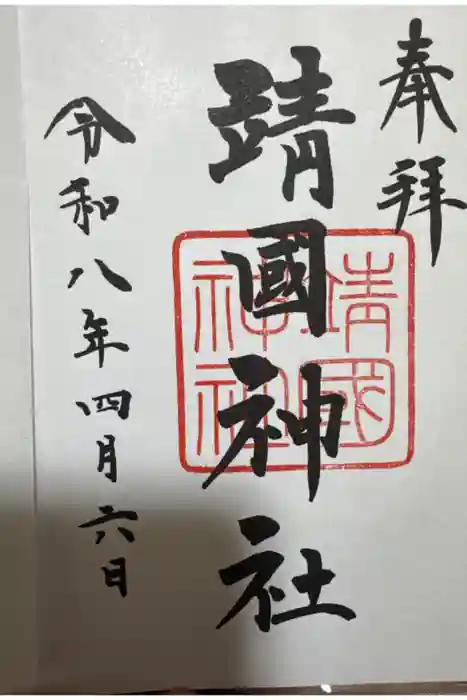 奉拝
靖國神社
靖國
神社
令和八年四月六日